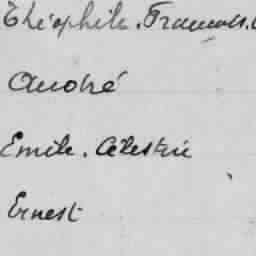 Théophile. Francois.
André
Emile. Célestin
Ernest